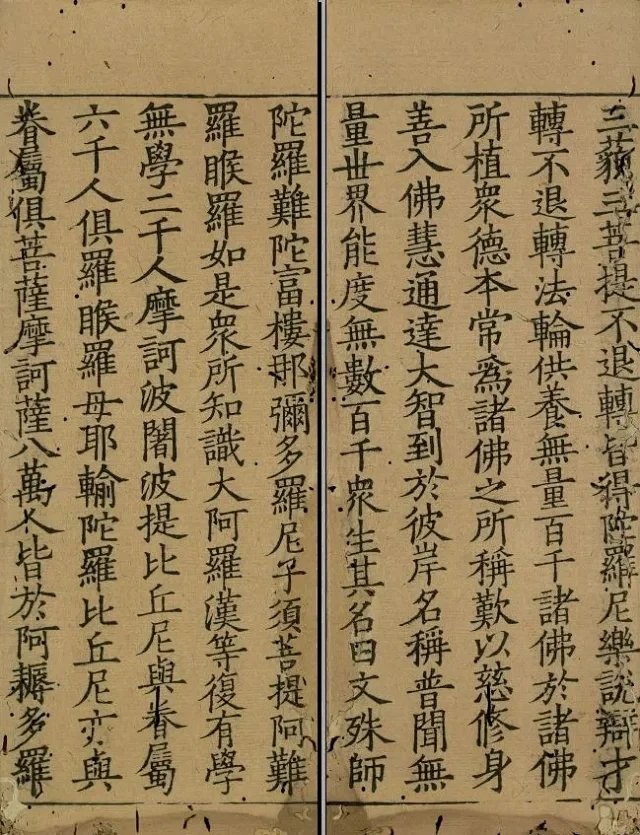 陀羅難陀富樓那彌多羅尼子須菩提阿難
羅睺羅如是衆所知識大阿羅漢等復有學
無學二千人摩訶波闍波提比丘尼與眷屬
六千人俱羅睺羅母耶輸陀羅比丘尼亦與
眷屬俱菩薩摩訶薩八萬人皆於阿耨多羅
三藐三菩提不退轉皆得陀羅尼樂說辯才
轉不退轉法輪供養無量百千諸佛於諸佛
所植衆德本常爲諸佛之所稱歎以慈修身
善入佛慧通達大智到於彼岸名稱普聞無
量世界能度無數百千衆生其名曰文殊師